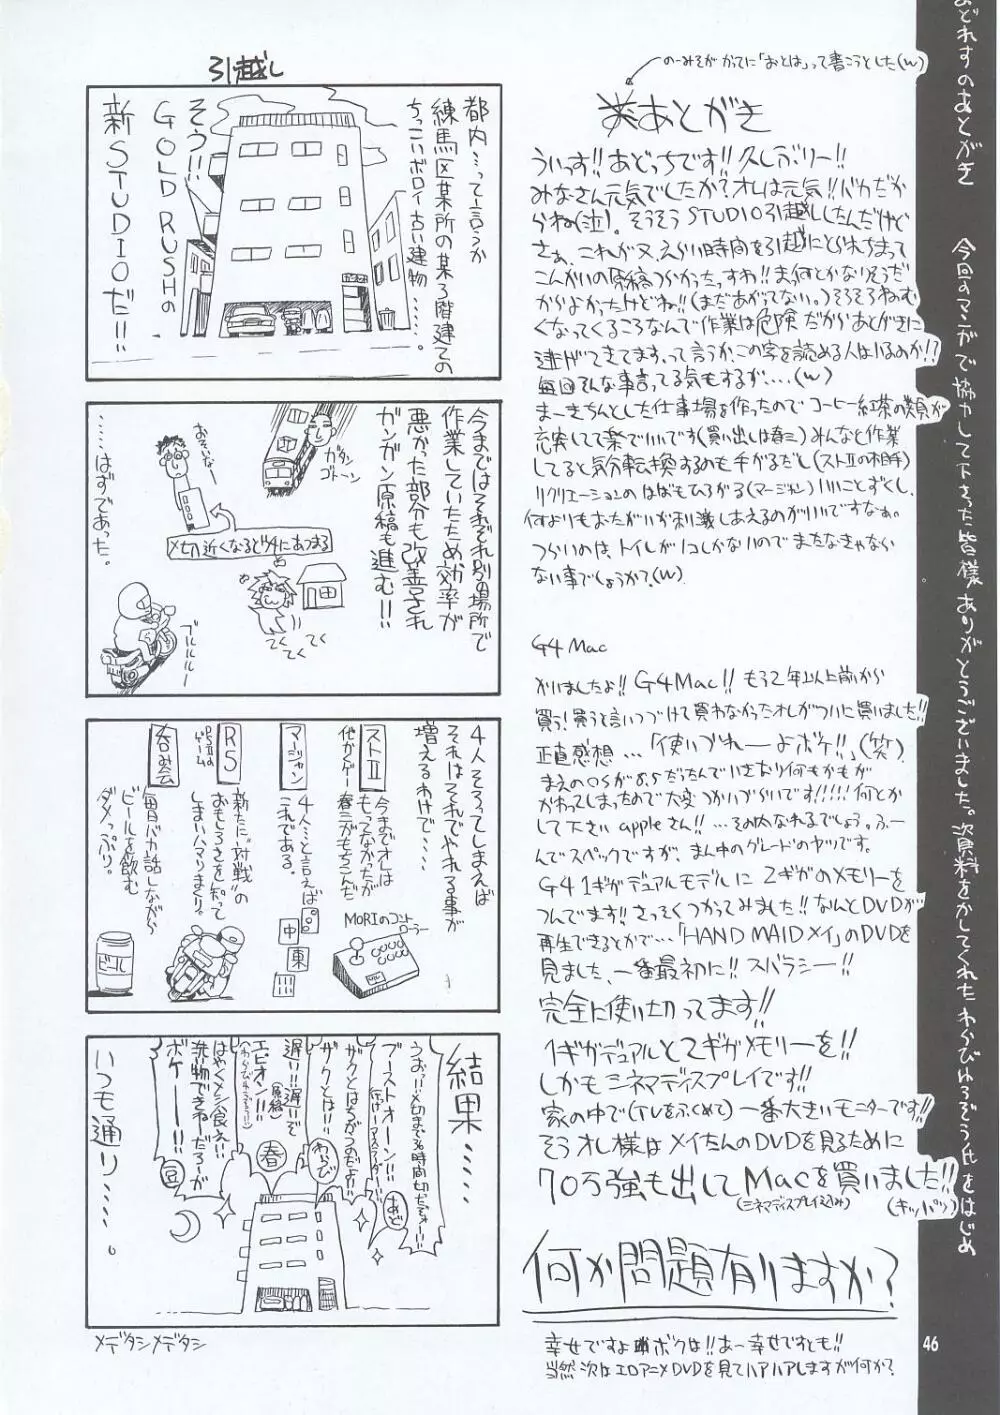 あどれすのあとがき
今回のマンガで協力して下さった皆様ありがとうございました。資料をかしてくれたわらびゅろぞう氏をはじめ
のーみそがかってに「おとは」って書こうとした(w)
あとがき
ういっす!!あどっちです!!久しぶりー!!
みなさん元気でしたか?オレは元気!!バカだか
らね(泣)。そうそうSTUDIO引越ししたんだけど
さぁ、これが又えらい時間を引越にとられちまって
こんかいの原稿つらかったっすわ!!ま、何とかなりそうだ
からよかったけどね!!(まだあがってない。)そろそろねむ
くなってくるころなんで作業は危険だからあとがきに
逃げてきてます、って言うか、この字を読める人はいるのか!?
毎回そんな事言ってる気もするが‥‥(w)
まーきちんとした仕事場を作ったのでコーヒー紅茶の類が
充実してて楽でいいです(買い出しは春三)みんなと作業
してると気分転換するのも手がるだし(ストⅡの相手)
リクリエーションのはばもひろがる(マージャン)いいことずくし、
何よりもおたがいが刺激しあえるのがいいですなぁ。
つらいのは、トイレが1コしかないのでまたなきゃなら
ない事でしょうか?(w)
G4 Mac
かいましたよ!!G4Mac!!もう2年以上前から
買う!買うと言いつづけて買わなかったオレがついに買いました!!
正直感想…「使いづれーよボケ!!」(笑)
まえのOSが8.5だったんでいきなり何もかもが
かわってしまったので大変つかいづらいです!!!!!何とか
して下さいappleさん!!…その内なれるでしょう。ふー
んでスペックですが、まん中のグレードのヤツです。
G4 1ギガデュアルモデルに2ギガのメモリーを
つんでます!!さっそくつかってみました!!なんとDVDが
再生できるとかで…「HAND MAID メイ」のDVDを
見ました、一番最初に!!スバラシー!!
完全に使い切ってます!!
1ギガデュアルと2ギガメモリーを!!
しかもシネマディスプレイです!!
家の中で(TVをふくめて)一番大きいモニターです!!
そうオレ様はメイたんのDVDを見るために
70万強も出してMacを買いました!!
(シネマディスプレイ込み)
(キッパリ)
何か問題有りますか?
幸せですよボクは!!あー幸せですとも!!
当然次はエロアニメDVDを見てハアハアしますが何か?
46
引越し
都内…って言うか
練馬区某所の某3階建ての
ちっこいボロイ古い建物‥‥‥。
そう!!
GOLD RUSHの
新STUDIOだ!!
今まではそれぞれ別の場所で
作業していたため効率が
悪かった部分も改善され
ガンガン原稿も進む!!
ガタン
ゴトーン
おそいなー
〆切近くなるとココにあつまる
てくてくてくてく
ブルルルルー
‥‥‥はずであった。
4人そろってしまえば
それはそれでやれる事が
増えるわけで‥‥
ストⅡ
他かくゲー
今までオレは
もってなかったが
春三がもちこんだ
マージャン
4人…と言えば
これである。
中
東
MORIのコントローラー
RS
PSⅡのゲーム
新たに"対戦"の
おもしろさを知って
しまいハマりまくり。
呑み会
毎日バカ話しながら
ビールを飲む
ダメっぷり。
ビール
結果‥‥‥
うおぉ!!〆切まで36時間切ったぞう!!
ブーストオーン!!
あど
ザクとはちがうのだよ!!
ザクとは!!
わらび
遅い!!遅いぞ
エピオン!!
(原稿)
春
はやくメシ食え!!
洗い物できねーだろーが
ボケーー!!
豆
いつも通り‥‥。
メデタシメデタシ